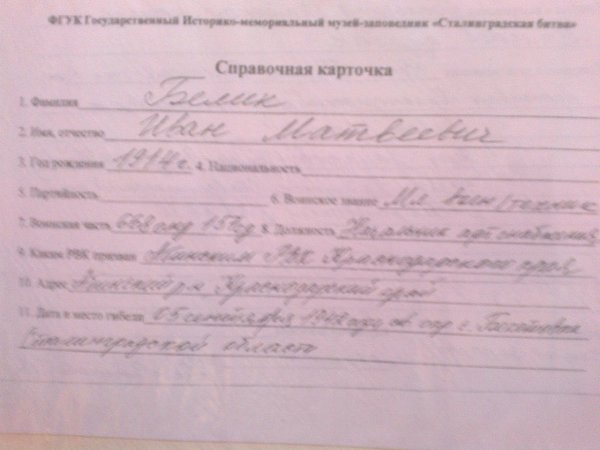 ФГУК Государственный Историко-мемориальный музей-заповедник «Сталинградская битва»
Справочная карточка
1. Фамилия Белик
2. Имя, отчество Иван Матвеевич
3. Год рождения 1914 г. 4. Национальность
5. Партийность 6. Воинское звание Мл. воен/техник
7. Воинская часть 8. Должность Начальник артснабжения
9. Каким РВК призван Абинским РВК Краснодарского края
10. Адрес Абинский р-н Краснодарский край
11. Дата и место гибели 05 сентября 1942
Сталинградской области